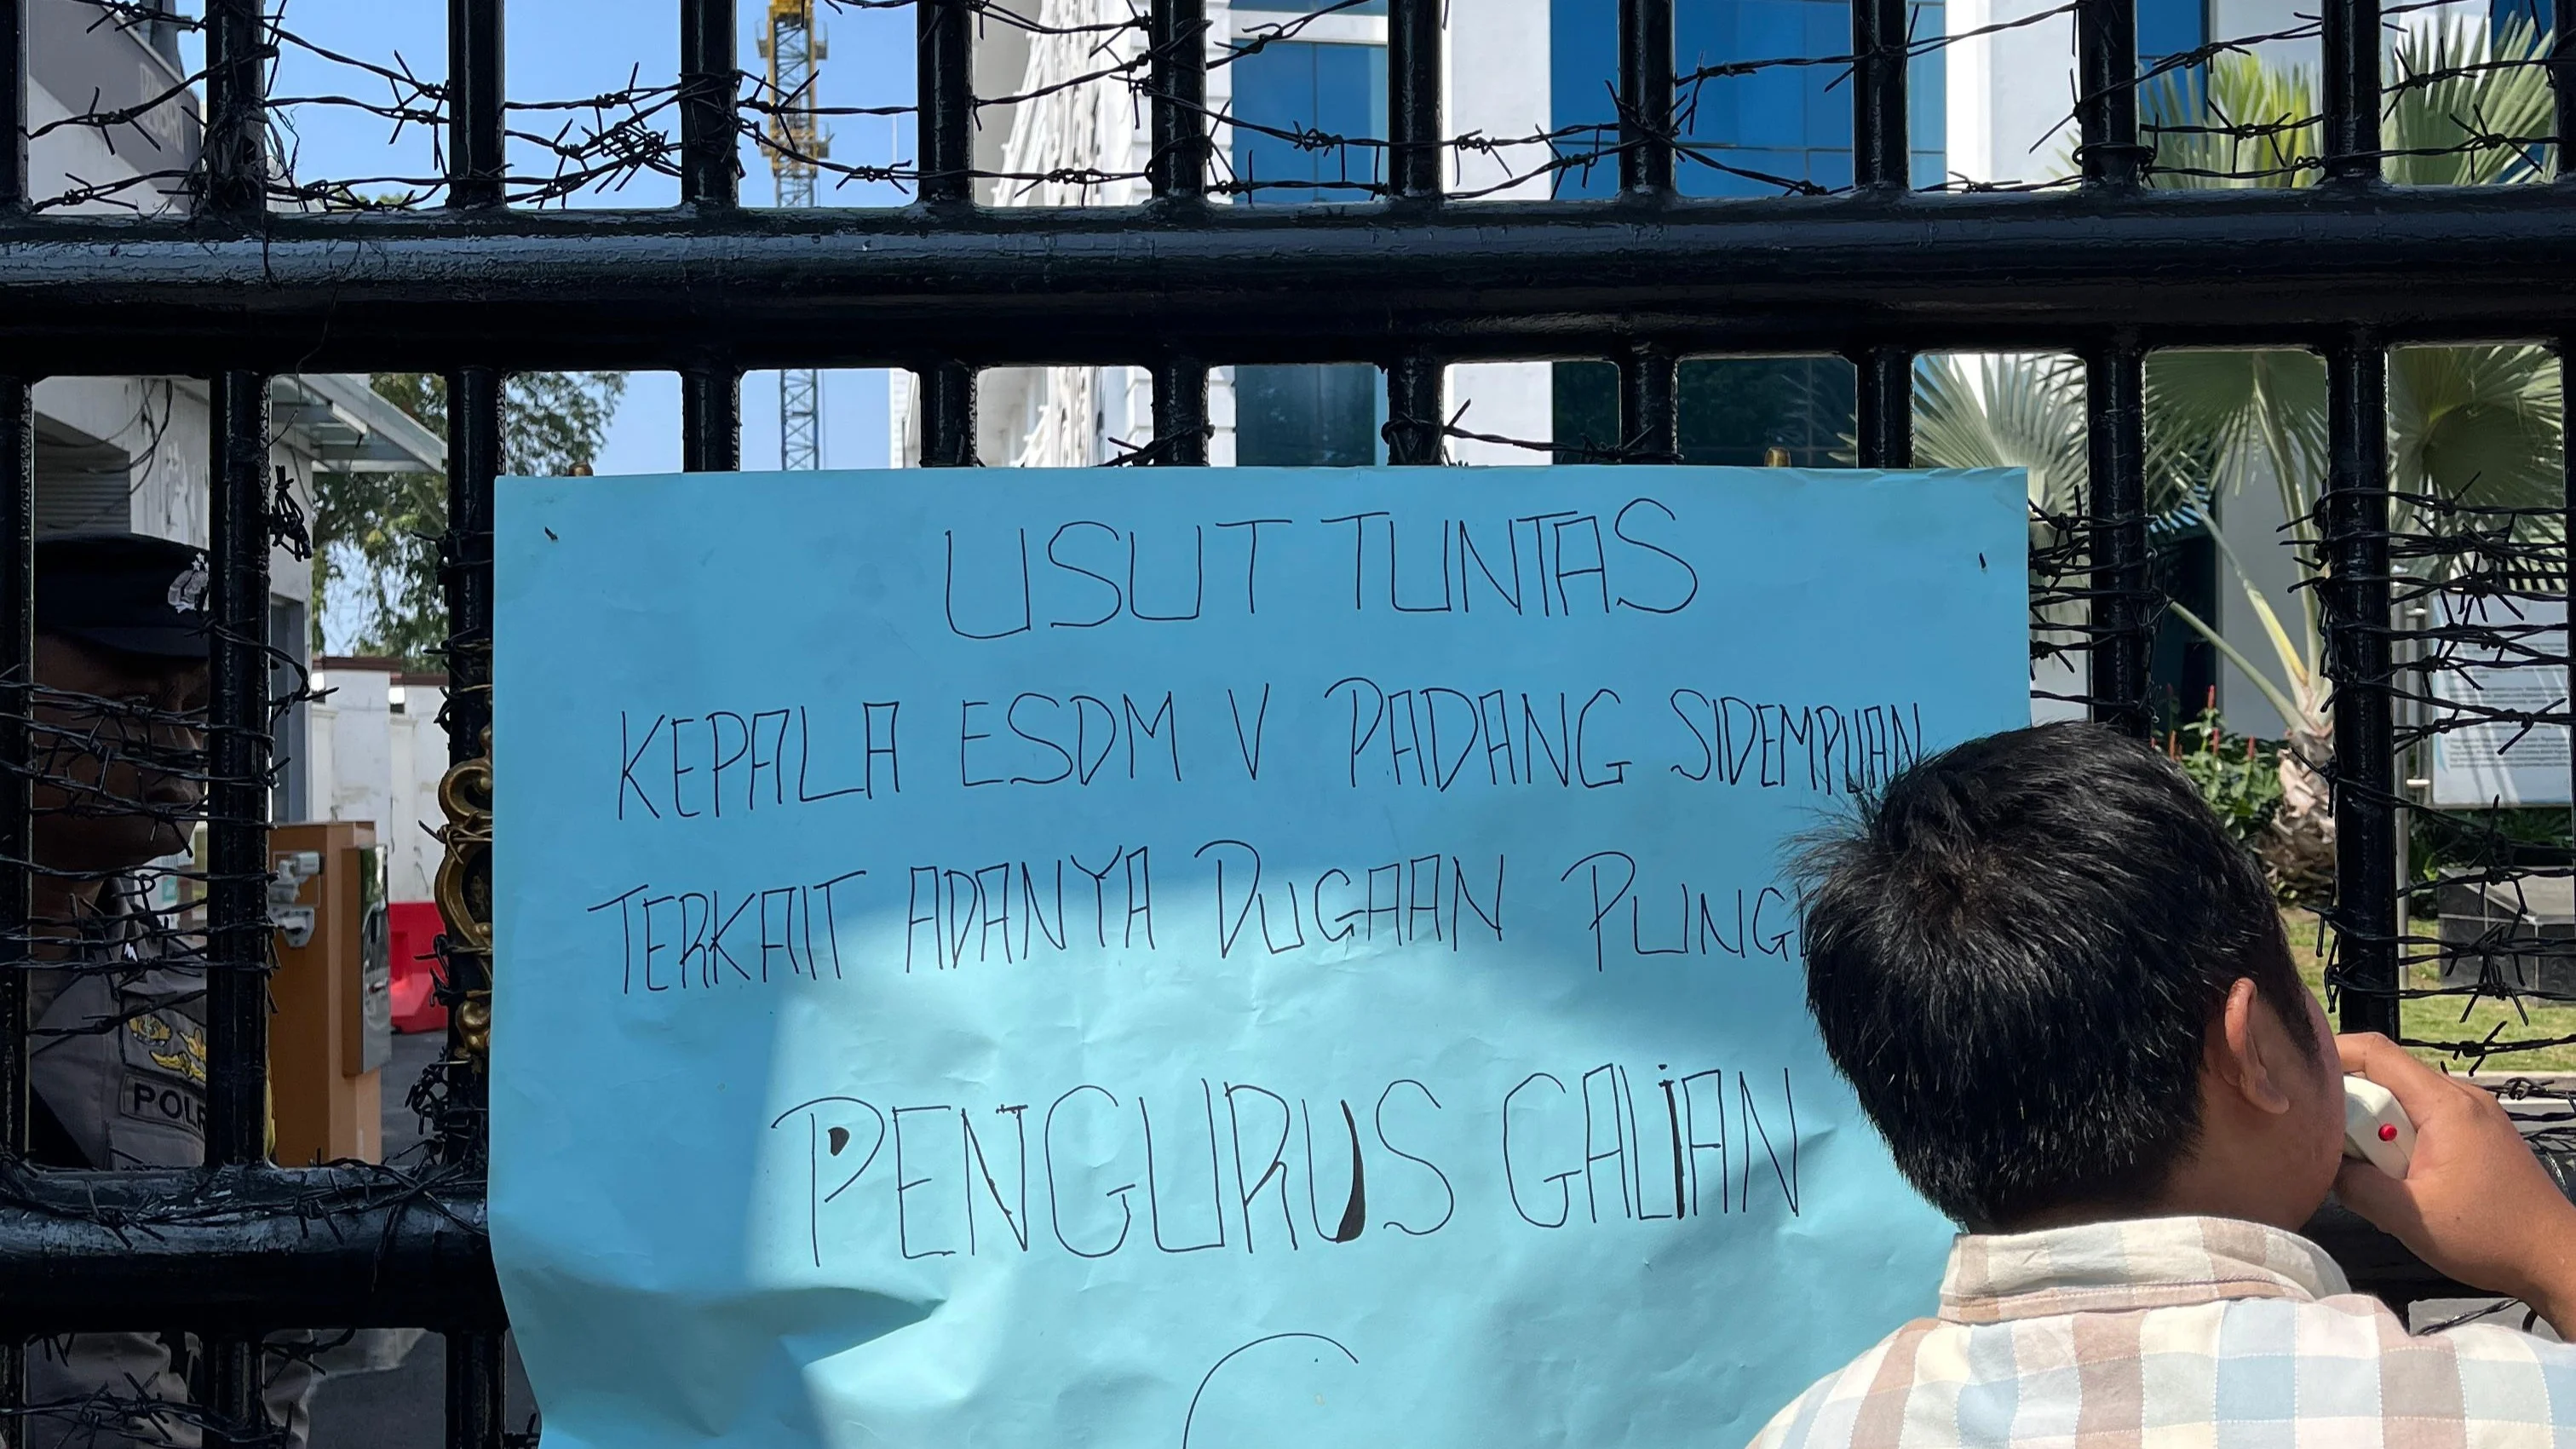 USUT TUNTAS
KEPALA ESDM V PADANG SIDEMPUAN
TERKAIT ADANYA DUGAAN
PENGURUS GALIAN
C